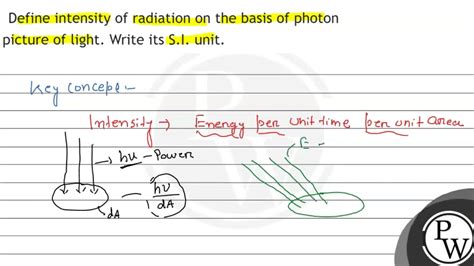 Define intensity of radiation on the basis of photon
picture of light. Write its S.I. unit.
Key concept -
Intensity → Energy per unit time per unit area
→ hν - Power
E -
hν
dA
dA
PW